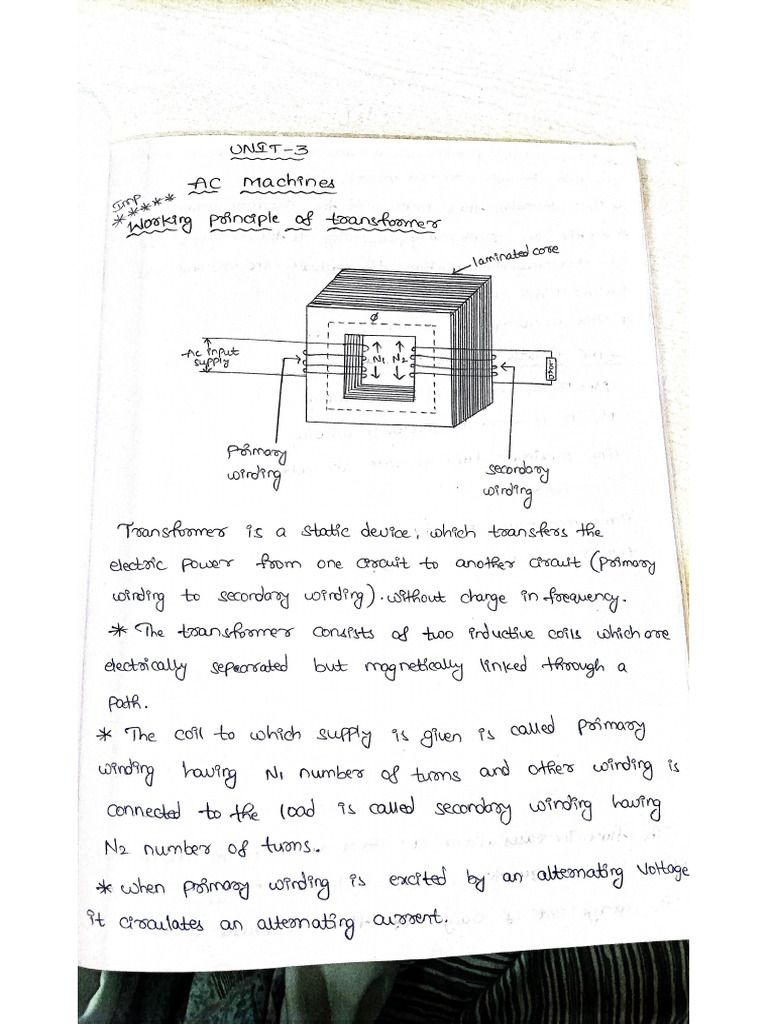 UNIT-3
AC Machines
Imp *****
Working principle of transformer
laminated core
φ
AC input
supply
N1 N2
LOAD
Primary
winding
secondary
winding
Transformer is a static device, which transfers the
electric power from one circuit to another circuit (primary
winding to secondary winding). without change in frequency.
* The transformer consists of two inductive coils which are
electrically separated but magnetically linked through a
path.
* The coil to which supply is given is called primary
winding having N1 number of turns and other winding is
connected to the load is called secondary winding having
N2 number of turns.
* when primary winding is excited by an alternating voltage
it circulates an alternating current.